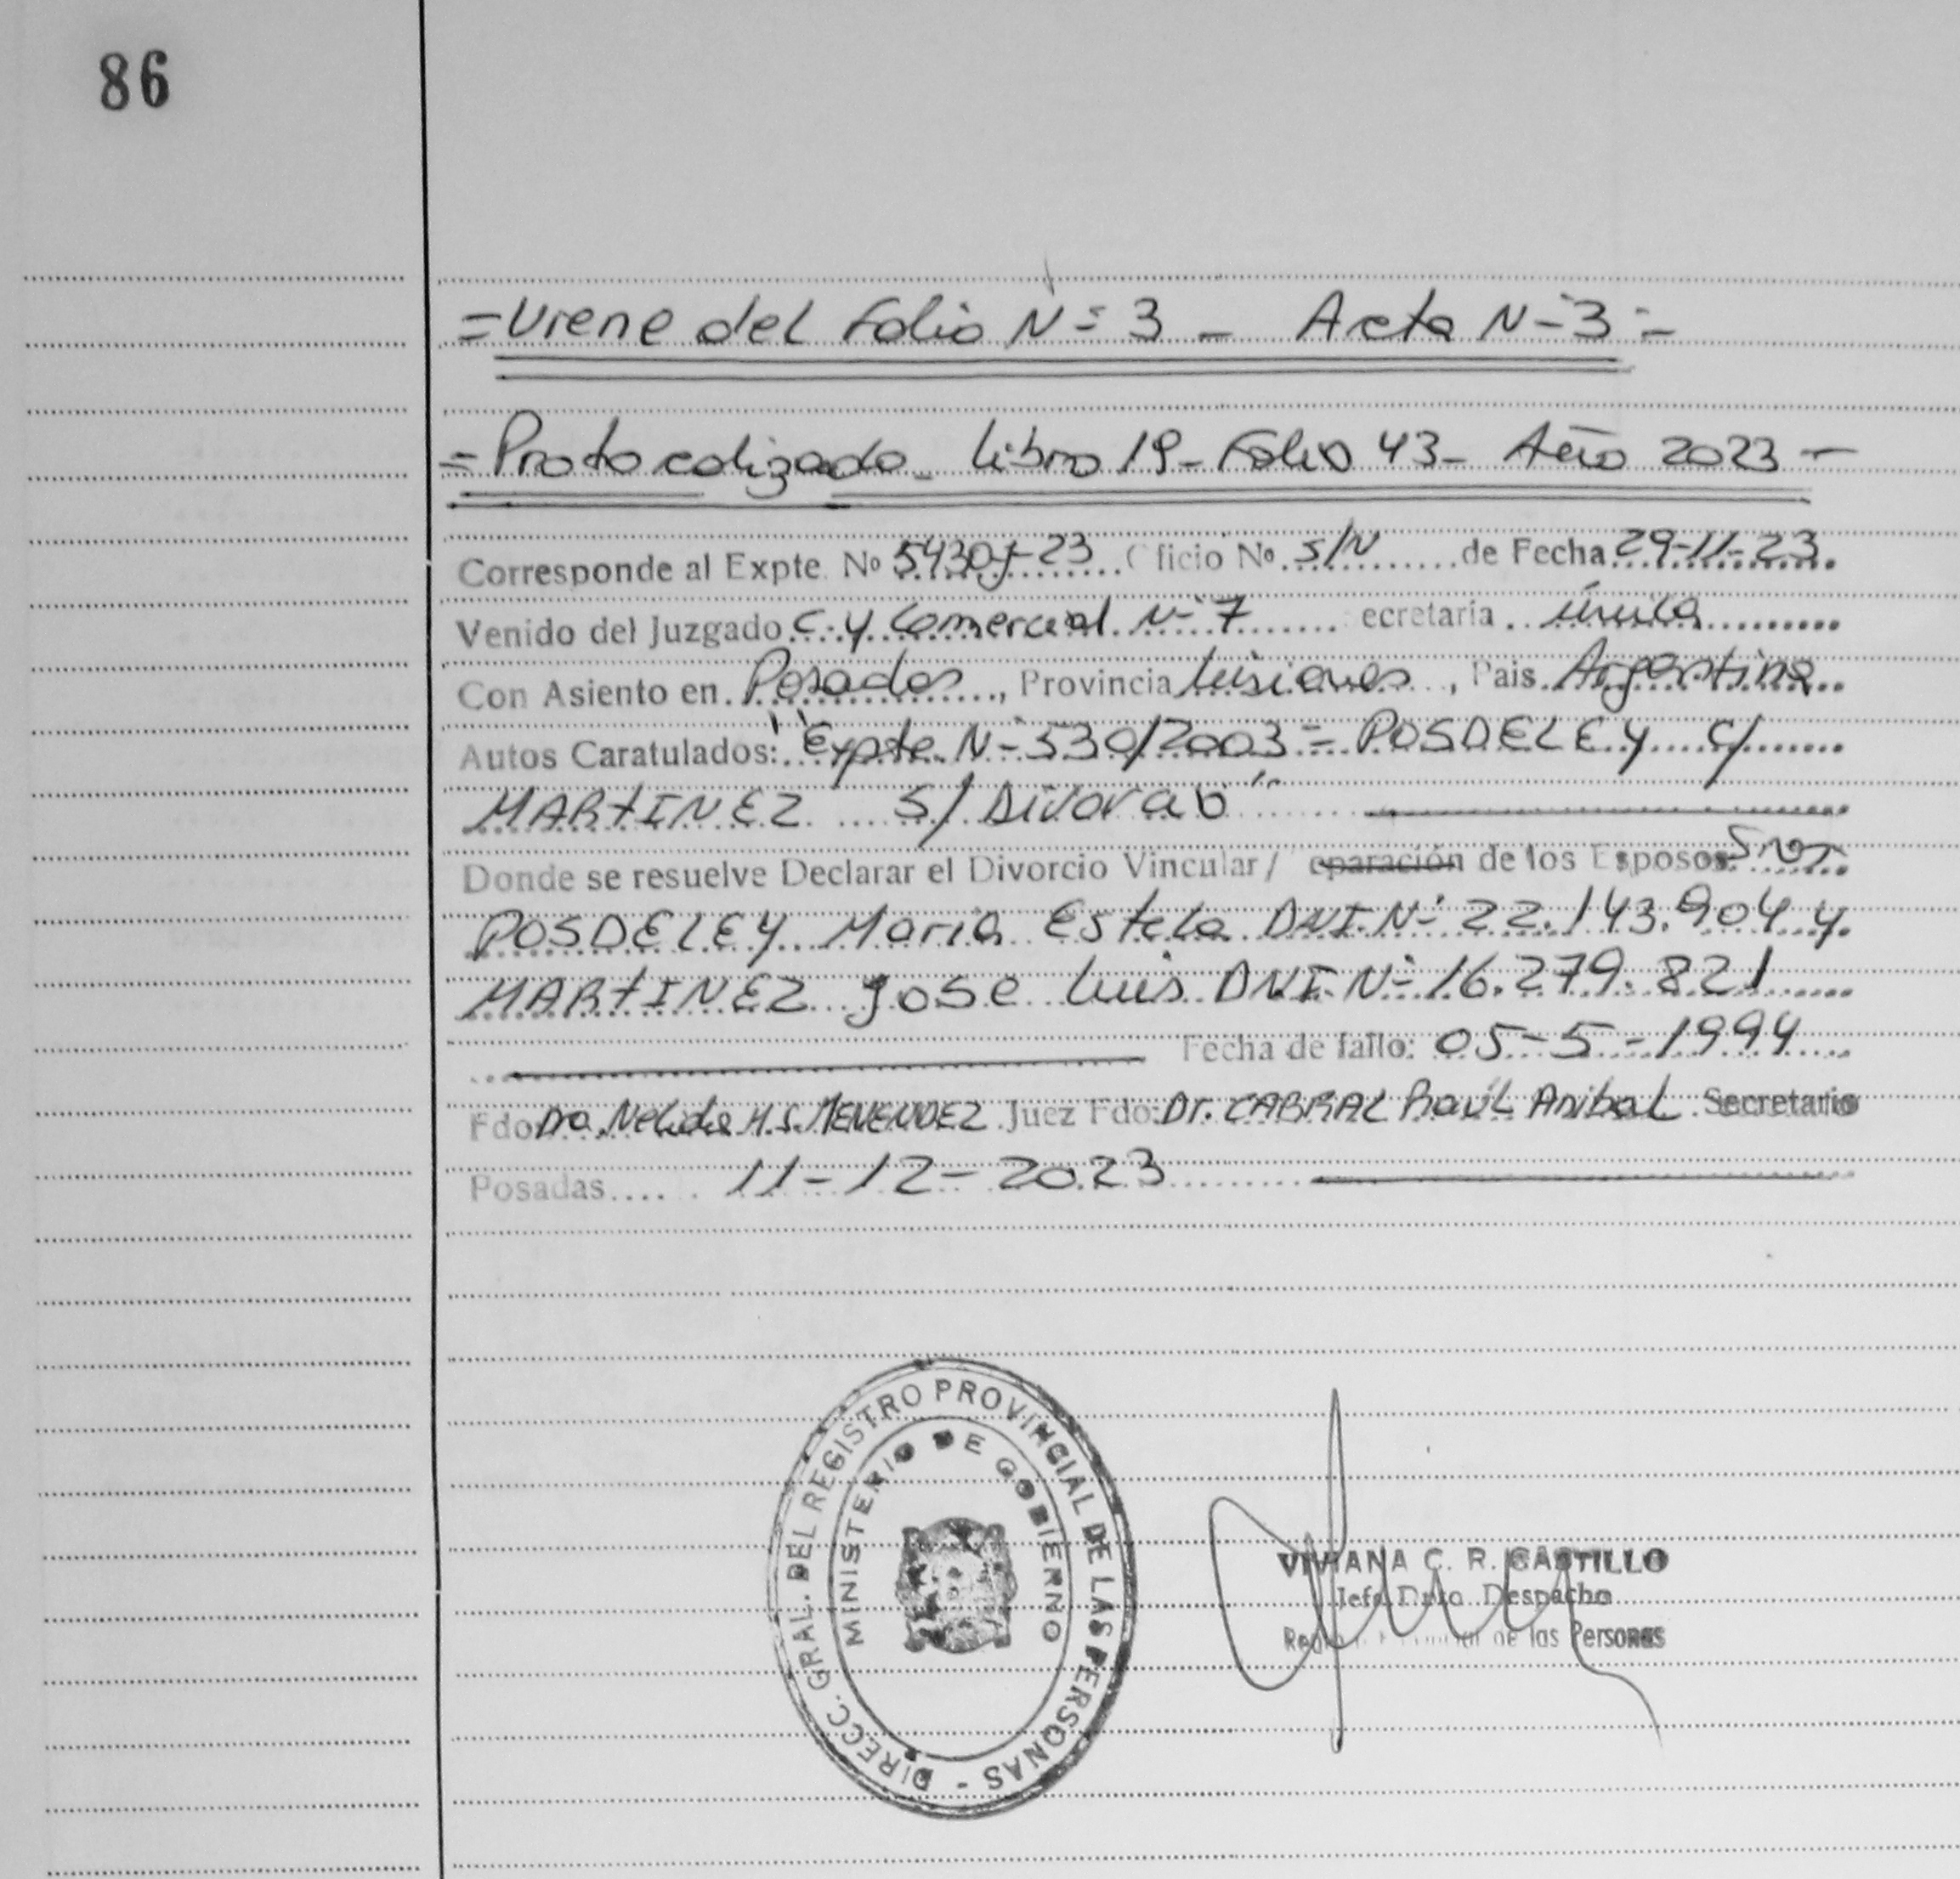 86
=Viene del Folio Nº 3 - Acta Nº 3 =
=Protocolizado - Libro 19 - Folio 43 - Año 2023 -
Corresponde al Expte. No 5430J-23 Oficio No. S/N de Fecha 29-11-23.
Venido del Juzgado C. y Comercial Nº 7 Secretaria única
Con Asiento en Posadas, Provincia Misiones, Pais Argentina
Autos Caratulados: "Expte. Nº 530/2003 = POSDELEY c/
MARTINEZ S/ Divorcio"
Donde se resuelve Declarar el Divorcio Vincular / eparación de los Esposos: Sres
POSDELEY Maria Estela DNI. Nº 22.143.904 y
MARTINEZ Jose Luis DNI. Nº 16.279.821
Fecha de fallo: 05-5-1994
Fdo Dra. Nelida H.S. MENENDEZ Juez Fdo: Dr. CABRAL Raúl Anibal Secretario
Posadas 11-12-2023
DIRECC. GRAL. DEL REGISTRO PROVINCIAL DE LAS PERSONAS -
MINISTERIO DE GOBIERNO
VIVIANA C. R. CASTILLO
Jefa Dpto. Despacho
de las Personas